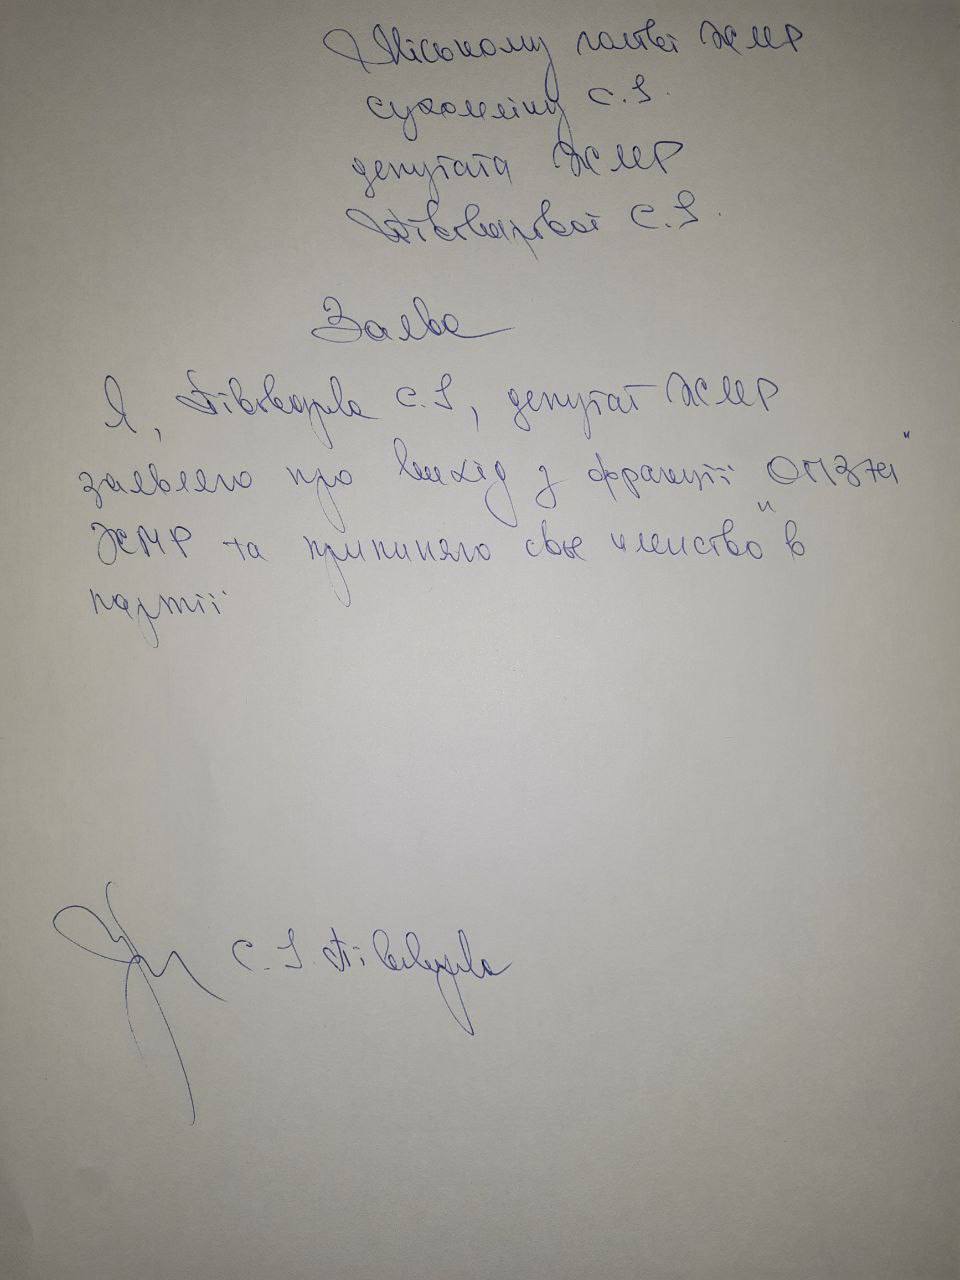 Міському голові ЖМР
Сухомлину С.І.
депутата ЖМР
Півоварової С.І.
Заява
Я, Півоварова С.І, депутат ЖМР
заявляю про вихід з фракції ОПЗЖ"
ЖМР та припиняю своє членство "в
партії
С.І. Півоварова